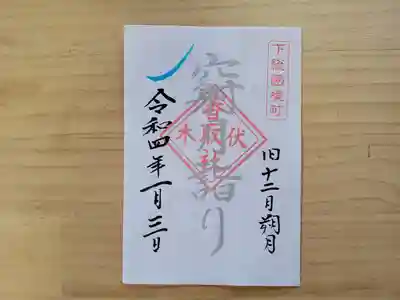 下総國境町
旧十二月朔月
月詣り
香取社
伏木
令和四年一月三日